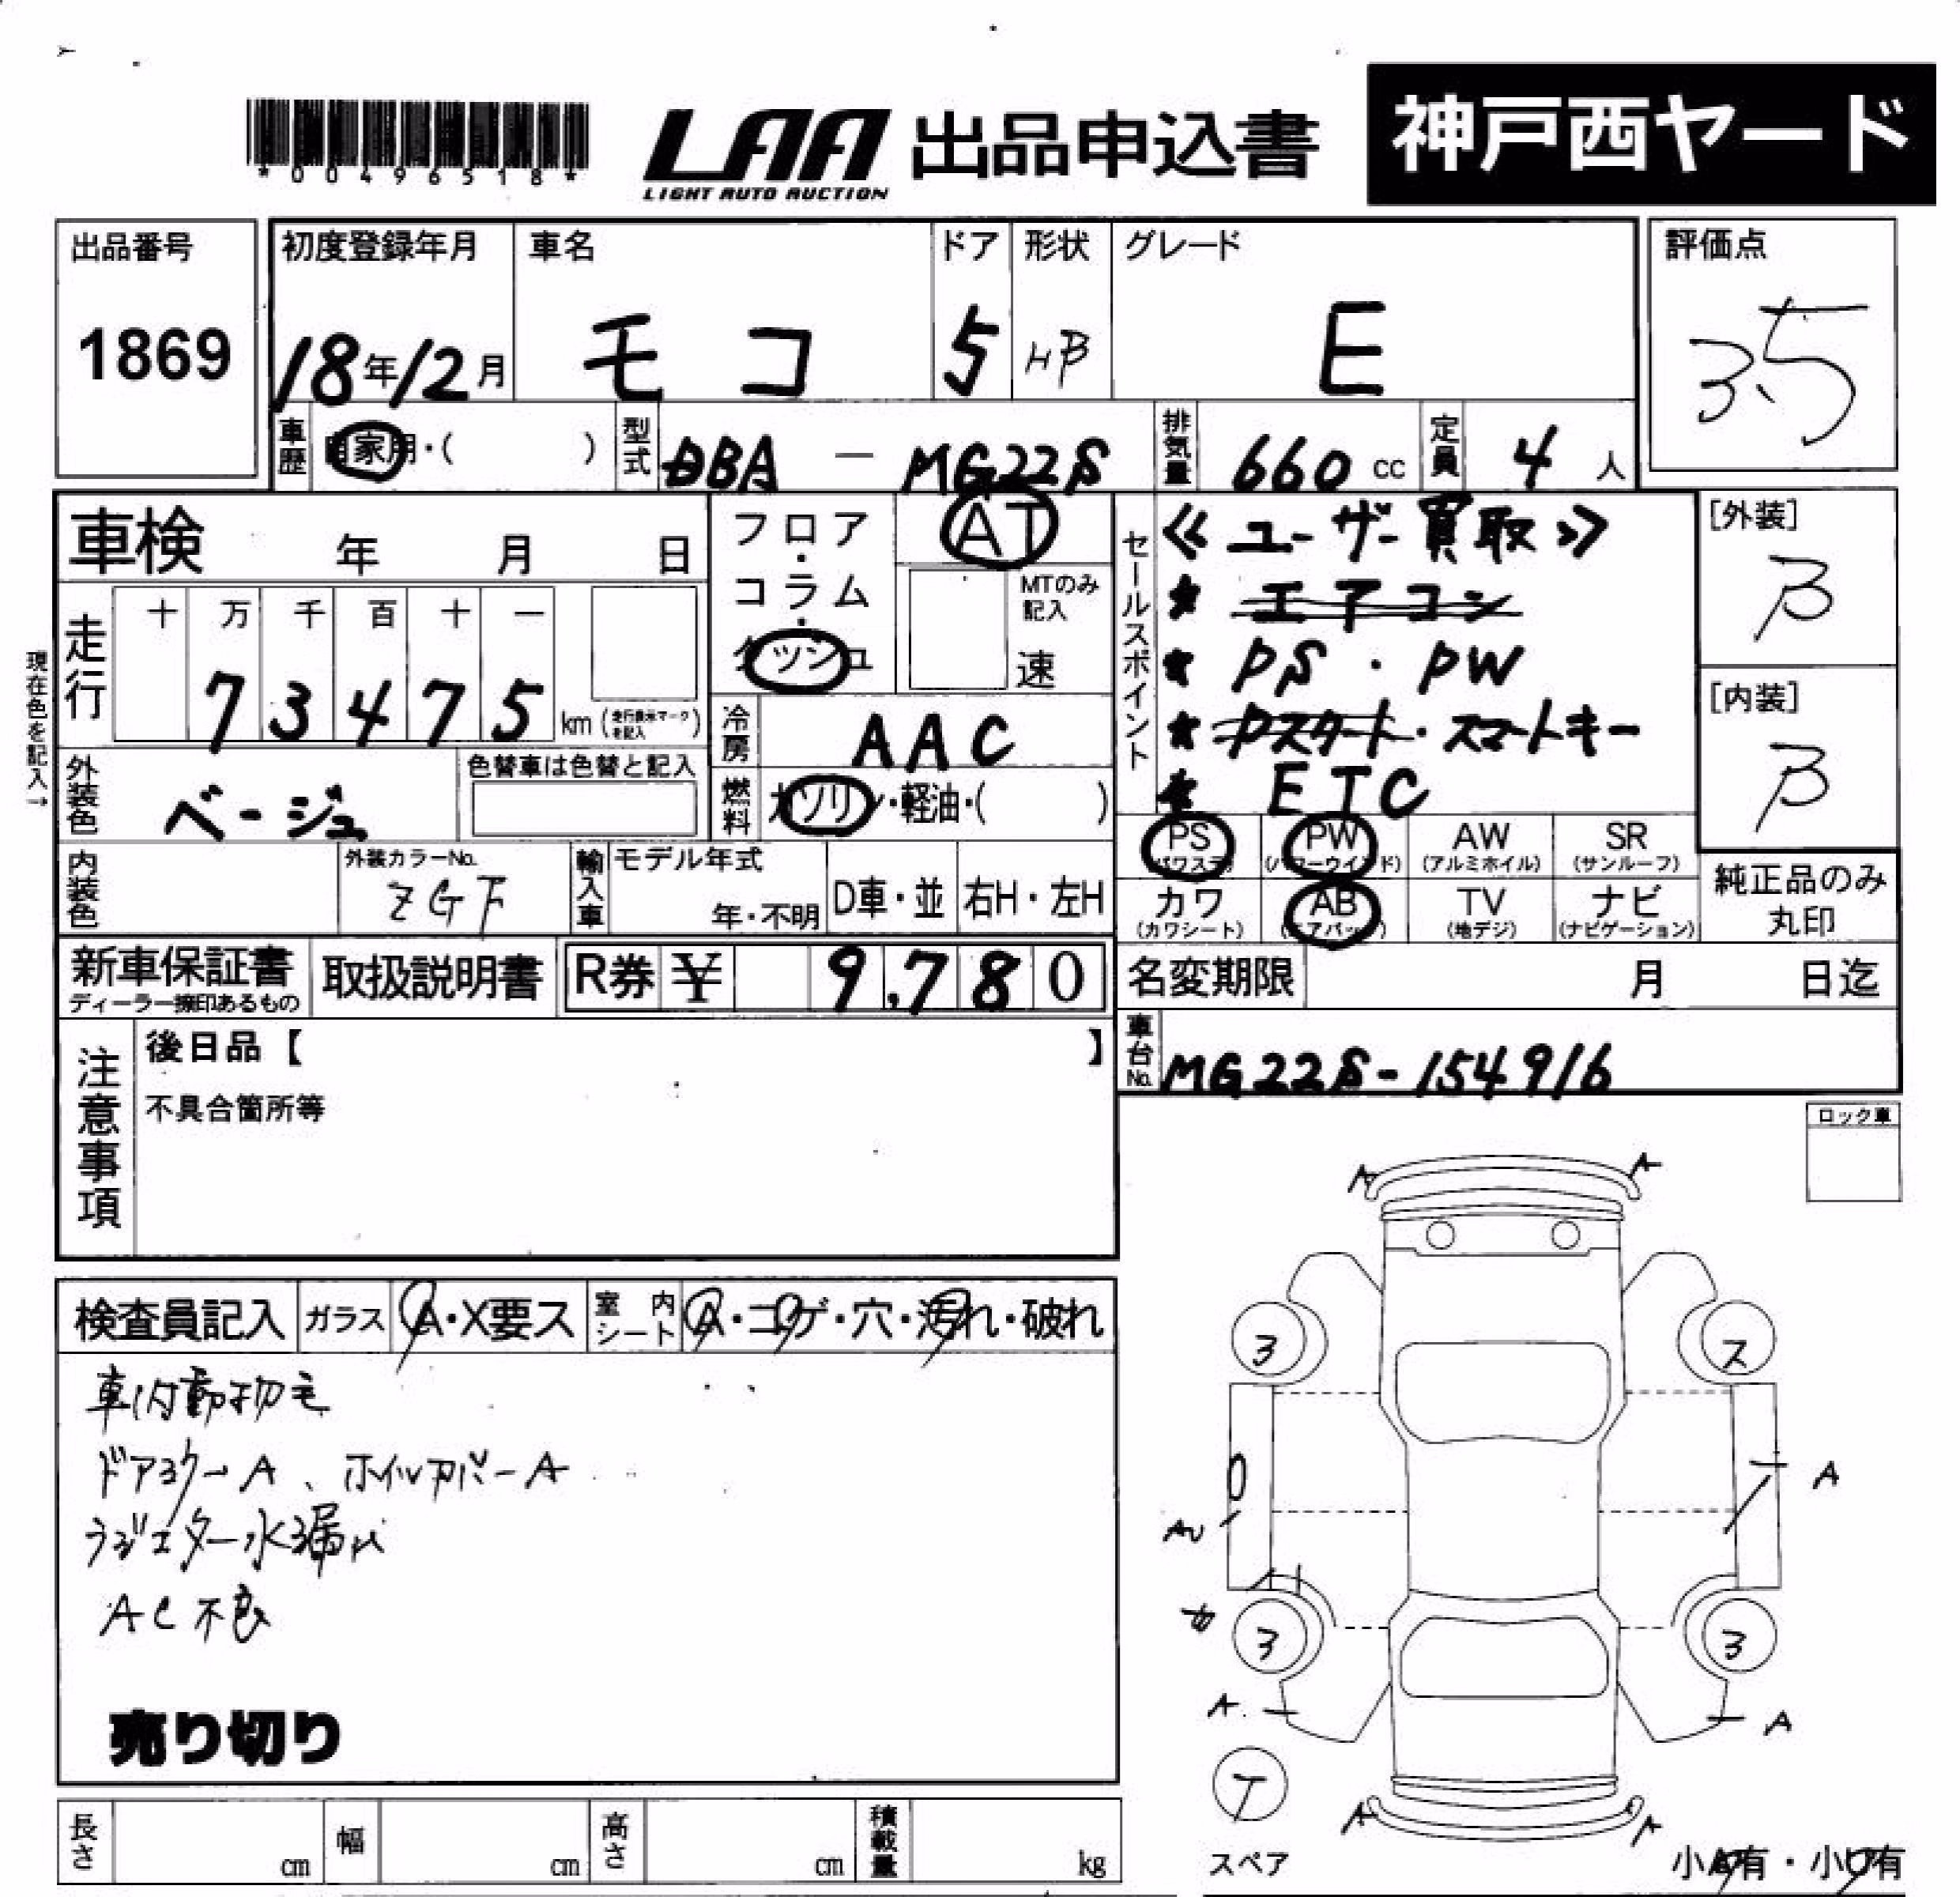 *00496518*
LAA 出品申込書 神戸西ヤード
LIGHT AUTO AUCTION
出品番号
1869
初度登録年月
18年12月
車名
モコ
ドア
5
形状
HB
グレード
E
評価点
3.5
車歴 自家用・( )
型式 DBA — MG22S
排気量 660 cc
定員 4 人
車検 年 月 日
フロア・コラム・クッシュ
AT
MTのみ記入
速
セールスポイント
≪ユーザー買取≫
★ エアコン
★ PS・PW
★ Pスタート・スマートキー
★ ETC
[外装]
B
[内装]
B
現在色を記入→
走行
十 万 千 百 十 一
7 3 4 7 5 km (走行表示マークを記入)
冷房 AAC
外装色 ベージュ
色替車は色替と記入
燃料 ガソリン・軽油・( )
内装色
外装カラーNo.
ZGF
輸入車
モデル年式
年・不明
D車・並
右H・左H
PS (パワステ)
PW (パワーウインド)
AW (アルミホイル)
SR (サンルーフ)
カワ (カワシート)
AB (エアバック)
TV (地デジ)
ナビ (ナビゲーション)
純正品のみ
丸印
新車保証書
ディーラー捺印あるもの
取扱説明書
R券 ¥ 9,780
名変期限 月 日迄
注意事項
後日品【 】
不具合箇所等
車台No. MG22S-154916
ロック車
検査員記入
ガラス A・X要ス
室内シート A・コゲ・穴・汚れ・破れ
車内動物毛
ドアミラーA、ホイルカバーA
ラジエター水漏れ
AC不良
売り切り
A A
3 ス
A
AU
3 3
A A
T
スペア
A A
小A有・小U有
長さ cm
幅 cm
高さ cm
積載量 kg